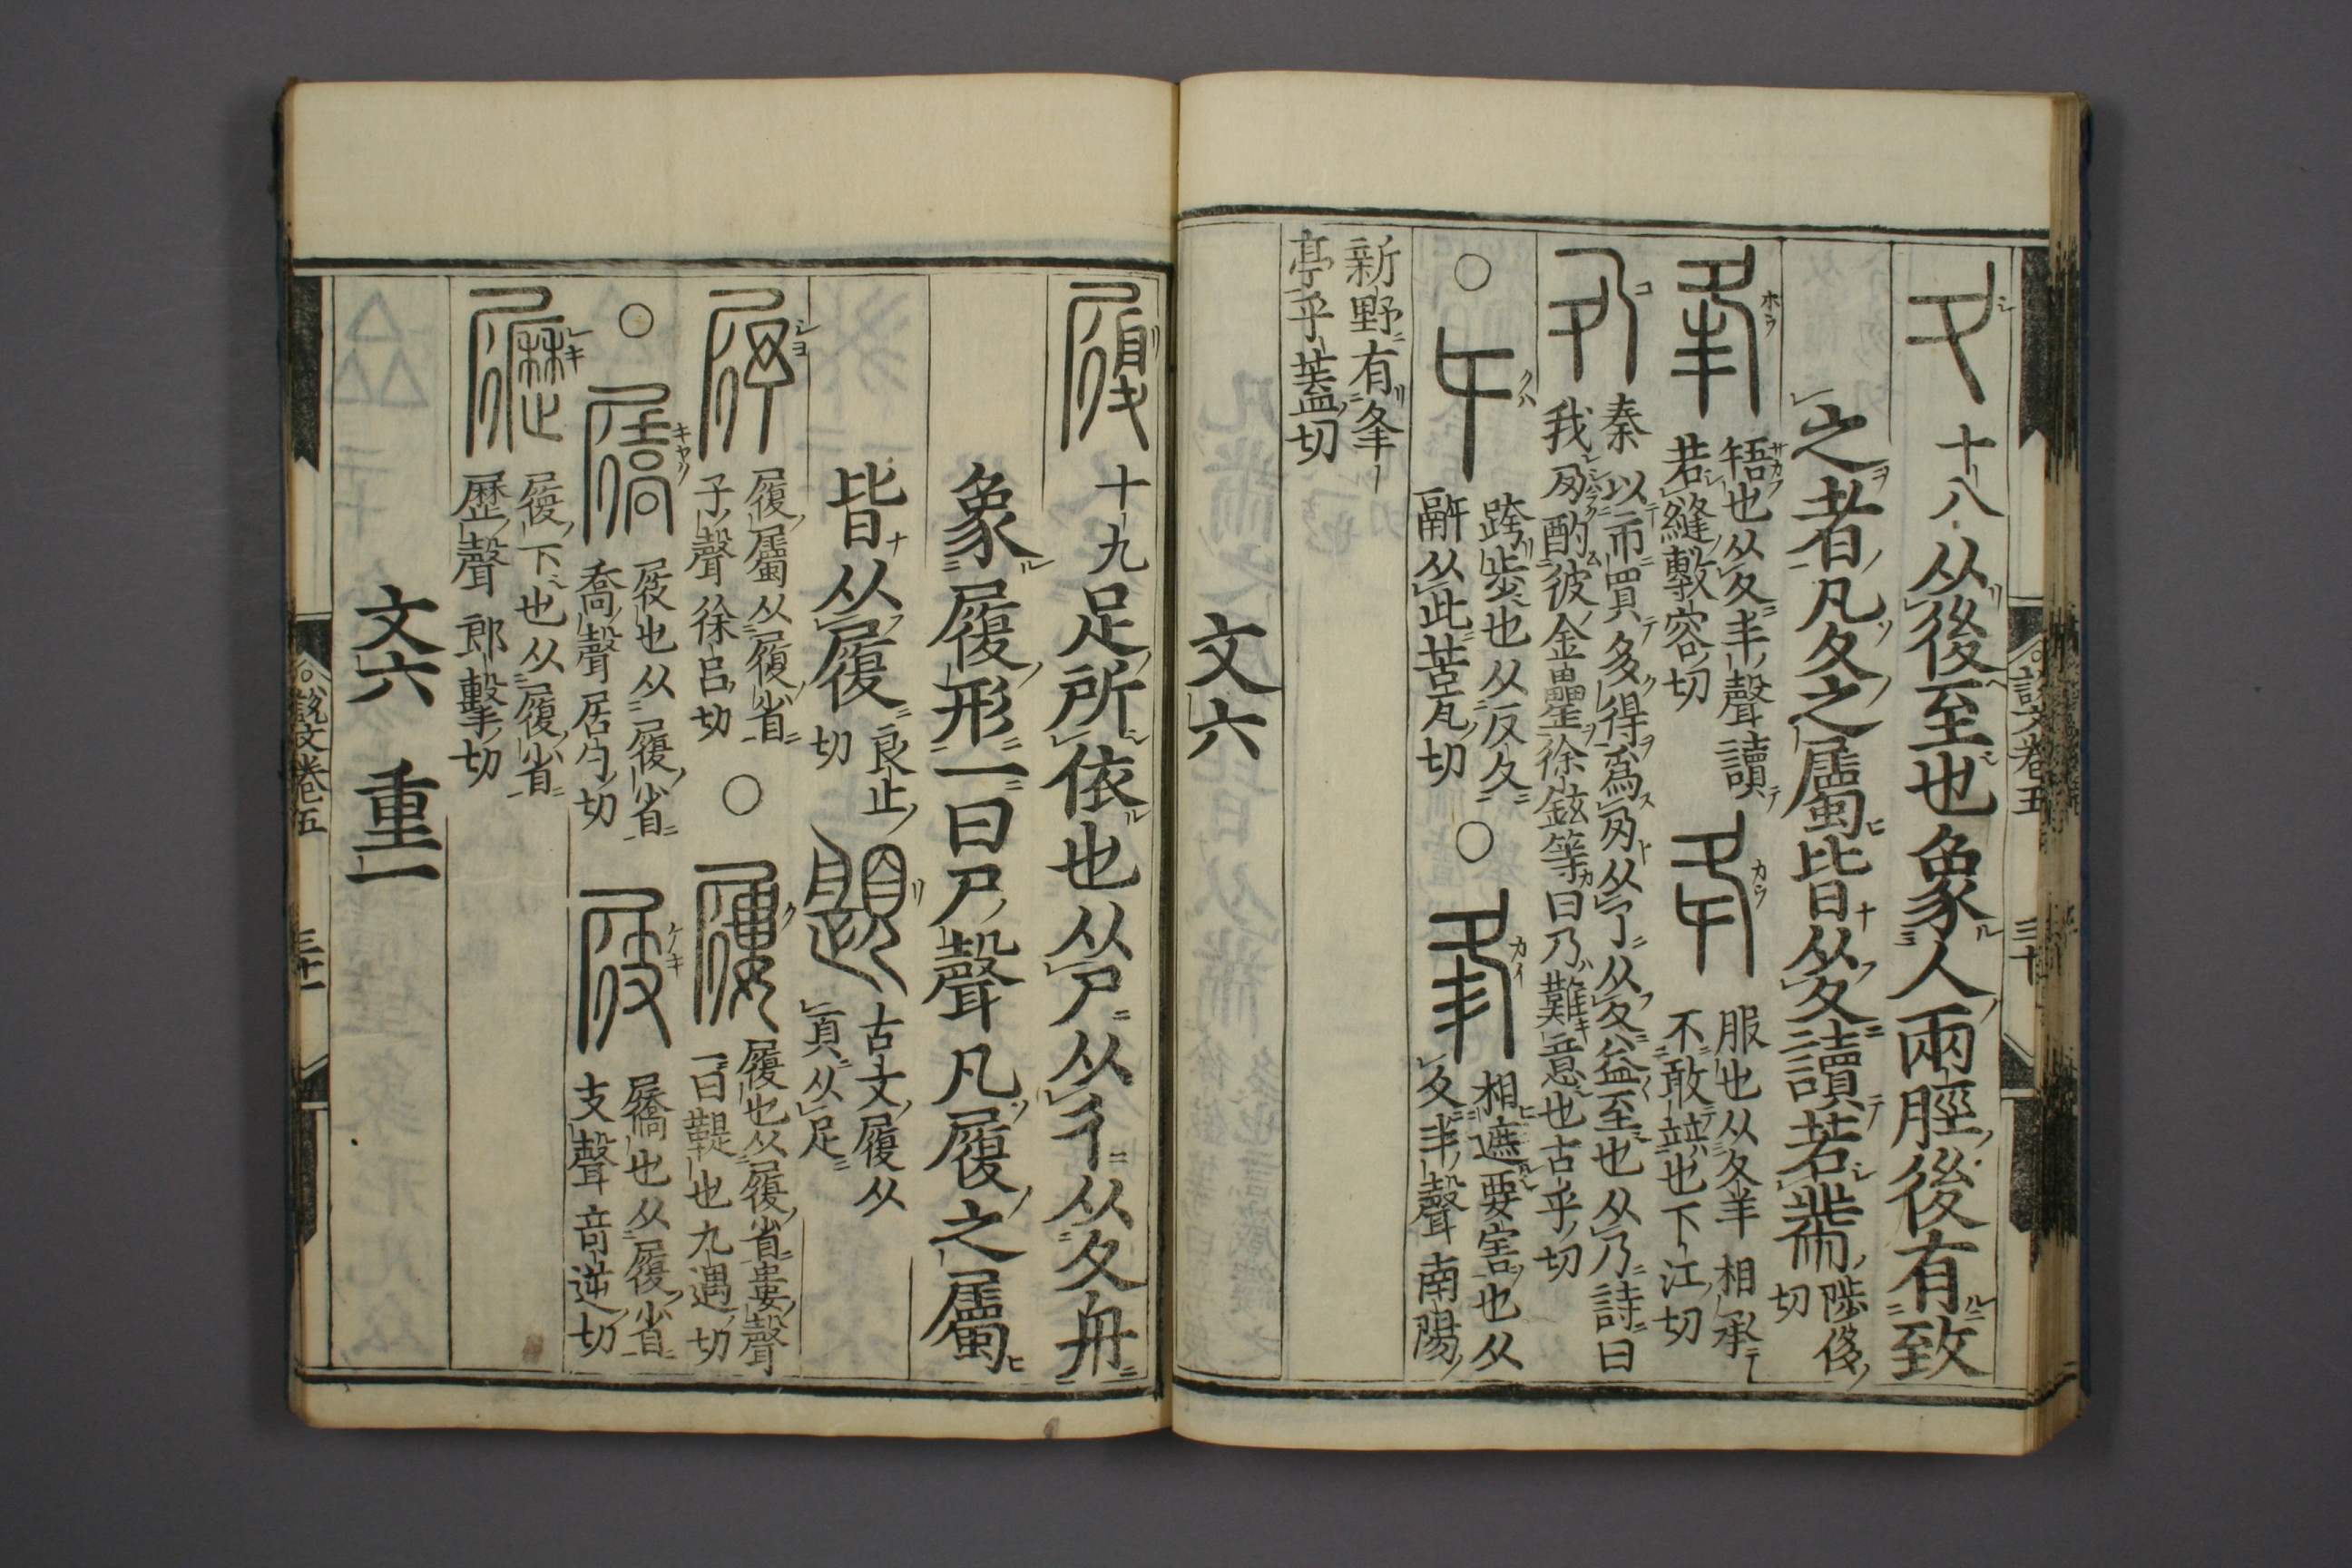 十八从後至也象人兩脛後有致
之者凡夂之屬皆从夂讀若黹陟侈切
啎也从夂半聲讀若縫敷容切
服也从夂羊相承不敢竝也下江切
秦以市買多得爲夃从丂从夂益至也从乃詩曰我夃酌彼金罍徐鉉等曰乃難意也古乎切
○跨步也从反夂䣄从此苦瓦切
○相遮要害也从夂丰聲南陽
新野有夆亭乎蓋切
文六
說文卷五
三十
十九足所依也从尸从彳从夂舟
象履形一曰尸聲凡履之屬
皆从履良止切
古文履从頁从足
履屬从履省予聲徐呂切
○履也从履省婁聲一曰鞮也九遇切
○屐也从履省喬聲居勺切
屩也从履省支聲竒逆切
履下也从履省歷聲郎擊切
文六 重一
說文卷五
三十一